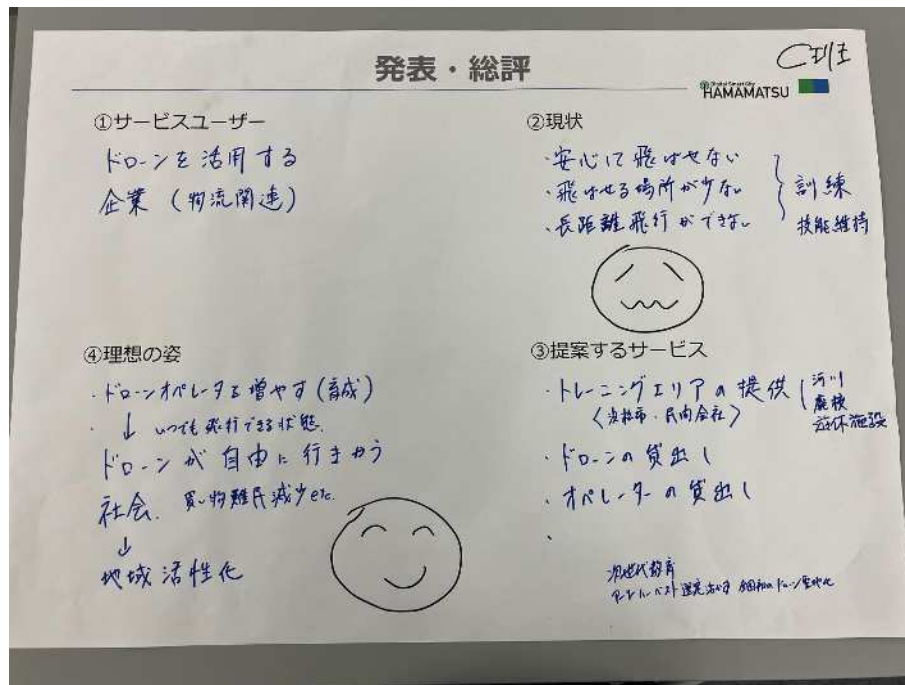 発表・総評
C班
Digital Smart City
HAMAMATSU
①サービスユーザー
ドローンを活用する
企業（物流関連）
②現状
・安心して飛ばせない
・飛ばせる場所が少ない
・長距離飛行ができない
訓練
技能維持
④理想の姿
・ドローンオペレータを増やす(育成)
・↓いつでも飛行できる状態.
ドローンが自由に行きかう
社会. 買い物難民減少etc.
↓
地域活性化
③提案するサービス
・トレーニングエリアの提供
〈浜松市・民間会社〉
河川
廃校
遊休施設
・ドローンの貸出し
・オペレーターの貸出し
・
次世代教育